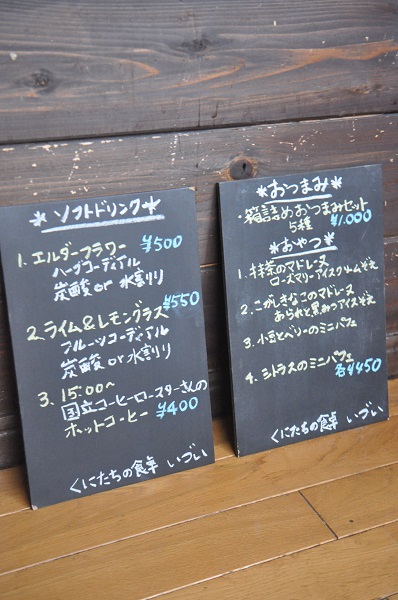 ＊ソフトドリンク＊
1. エルダーフラワー ¥500
ハーブコーディアル
炭酸 or 水割り
2. ライム&レモングラス ¥550
フルーツコーディアル
炭酸 or 水割り
3. 15:00〜
国立コーヒーロースターさんの
ホットコーヒー ¥400
くにたちの食卓 いづい
＊おつまみ＊
・箱詰めおつまみセット
5種 ¥1.000
＊おやつ＊
1. 抹茶のマドレーヌ
ローズマリーアイスクリーム添え
2. こがしきなこのマドレーヌ
あられと黒みつアイス添え
3. 小豆とベリーのミニパフェ
4. シトラスのミニパフェ
各¥450
くにたちの食卓 いづい